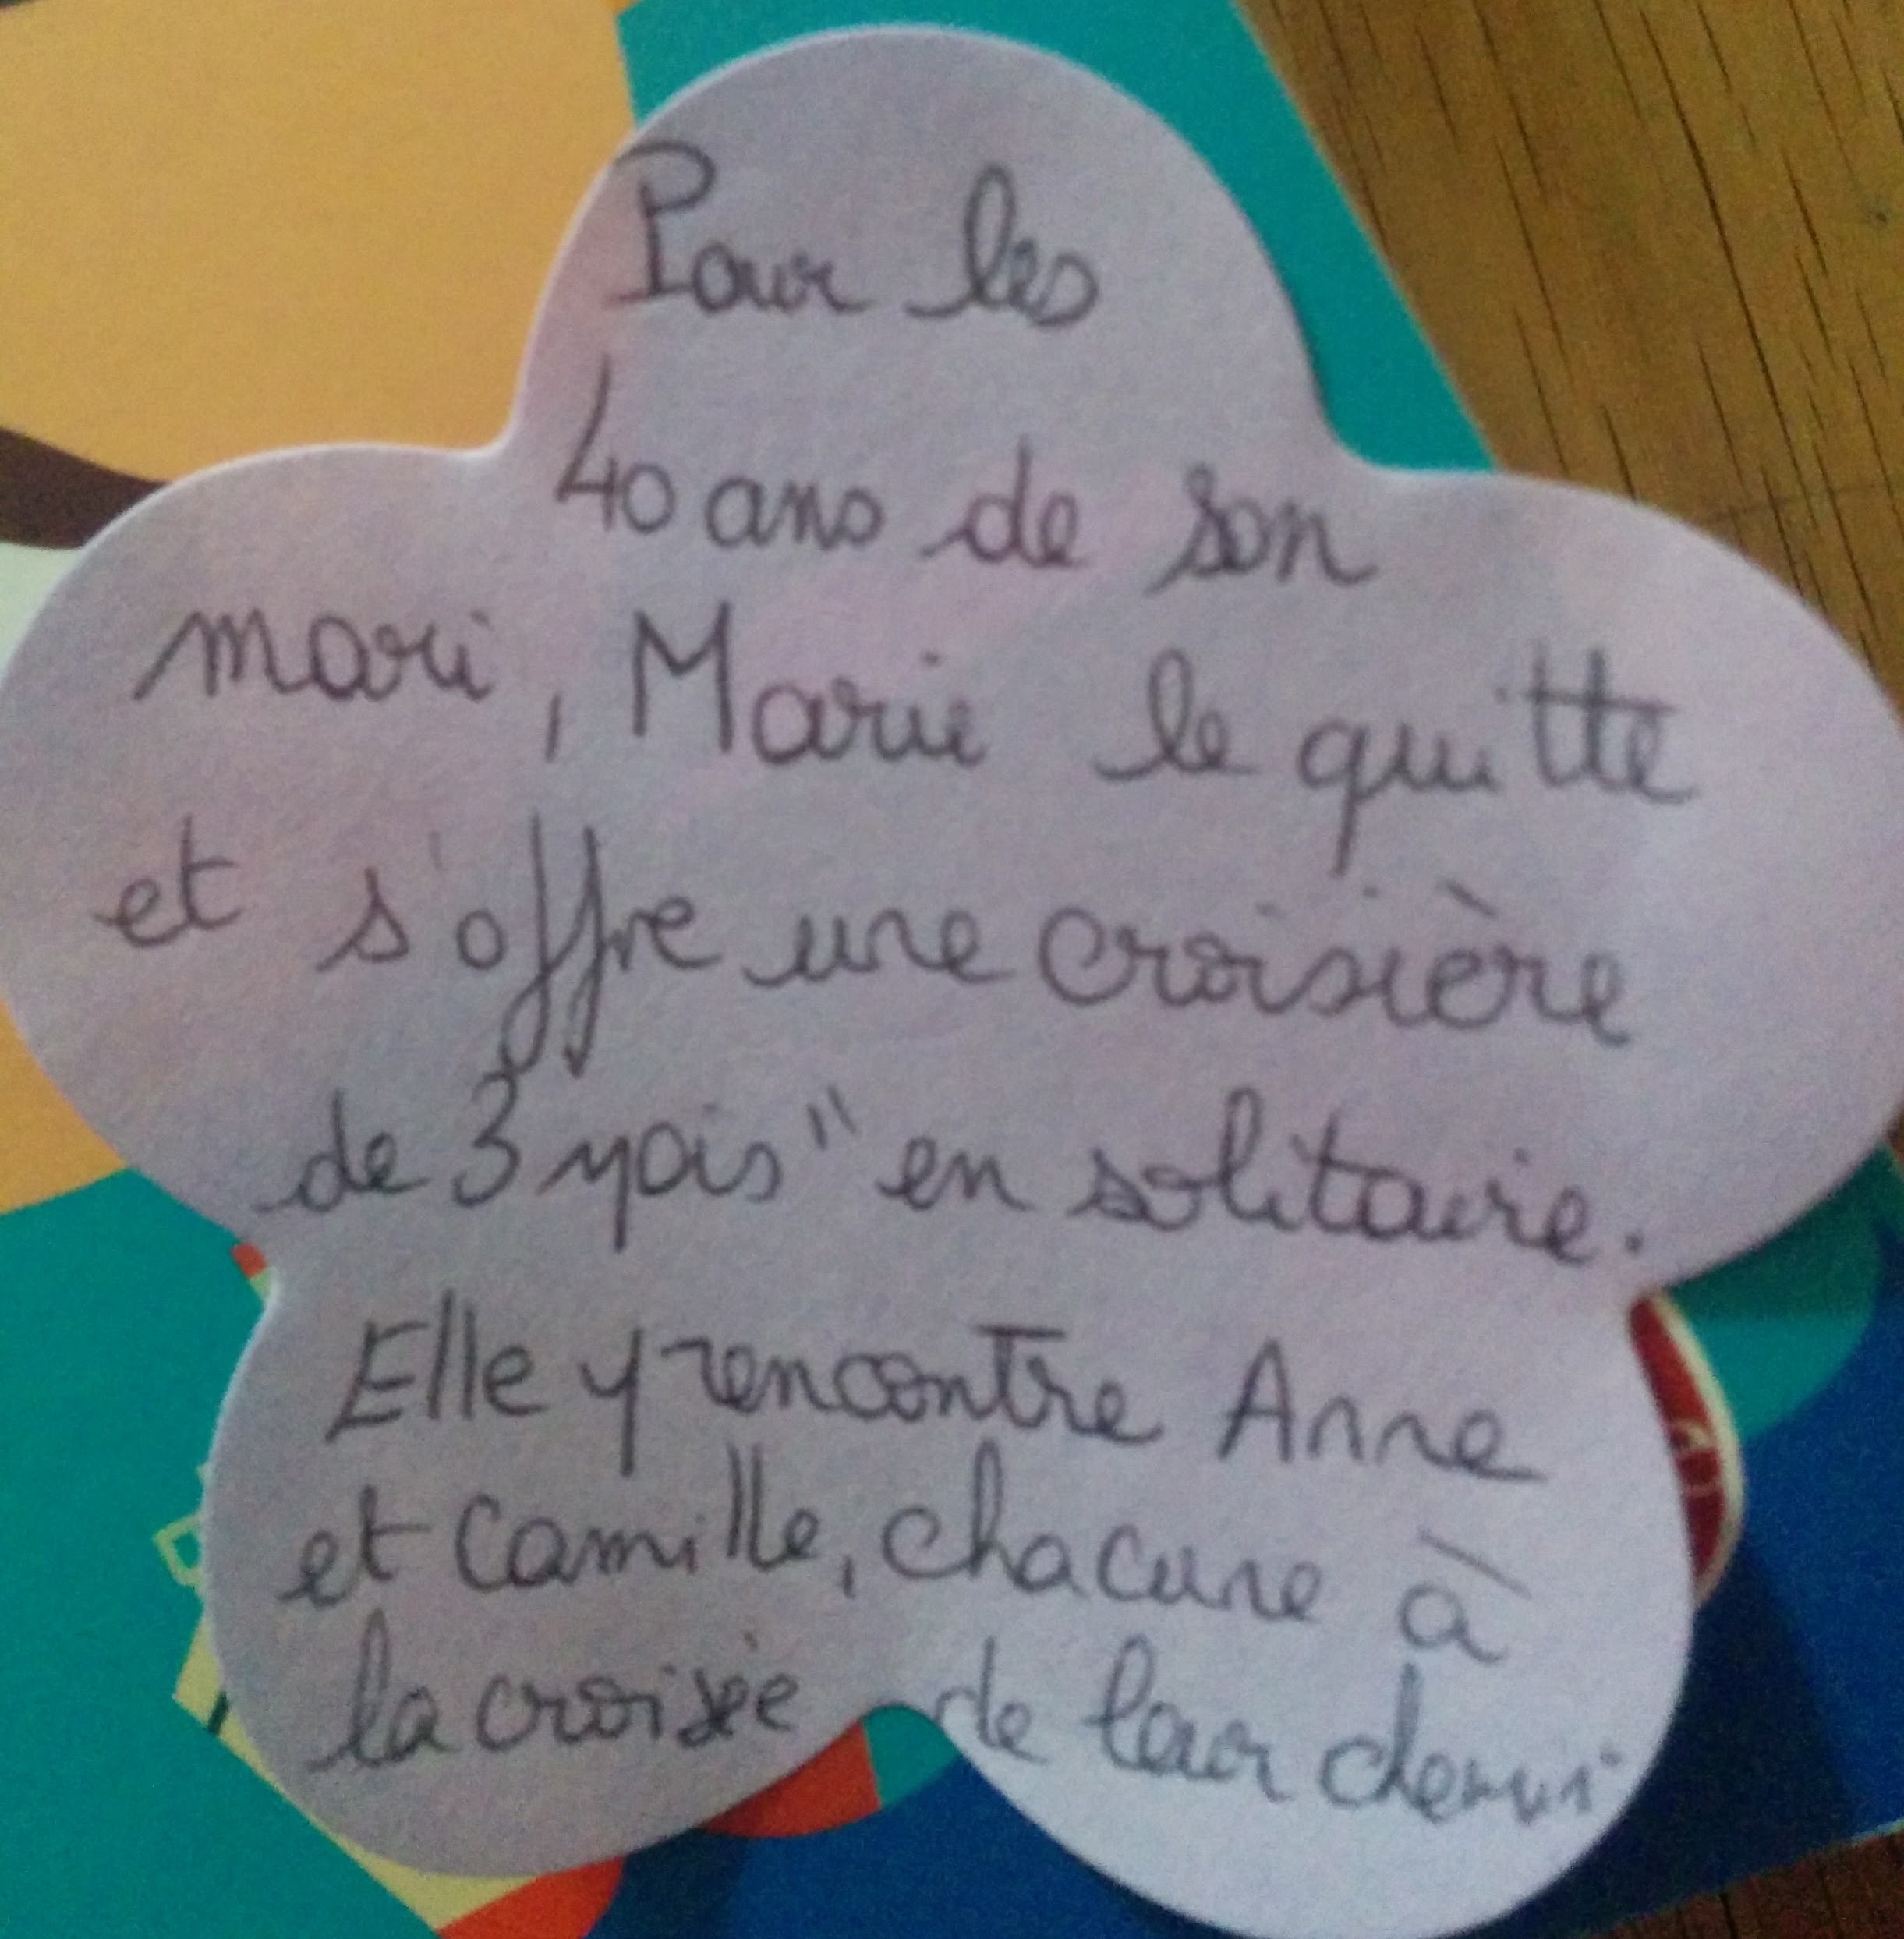 Pour les
40 ans de son
mari, Marie le quitte
et s'offre une croisière
de 3 mois" en solitaire.
Elle y rencontre Anne
et Camille, chacune à
la croisée de leur chemin